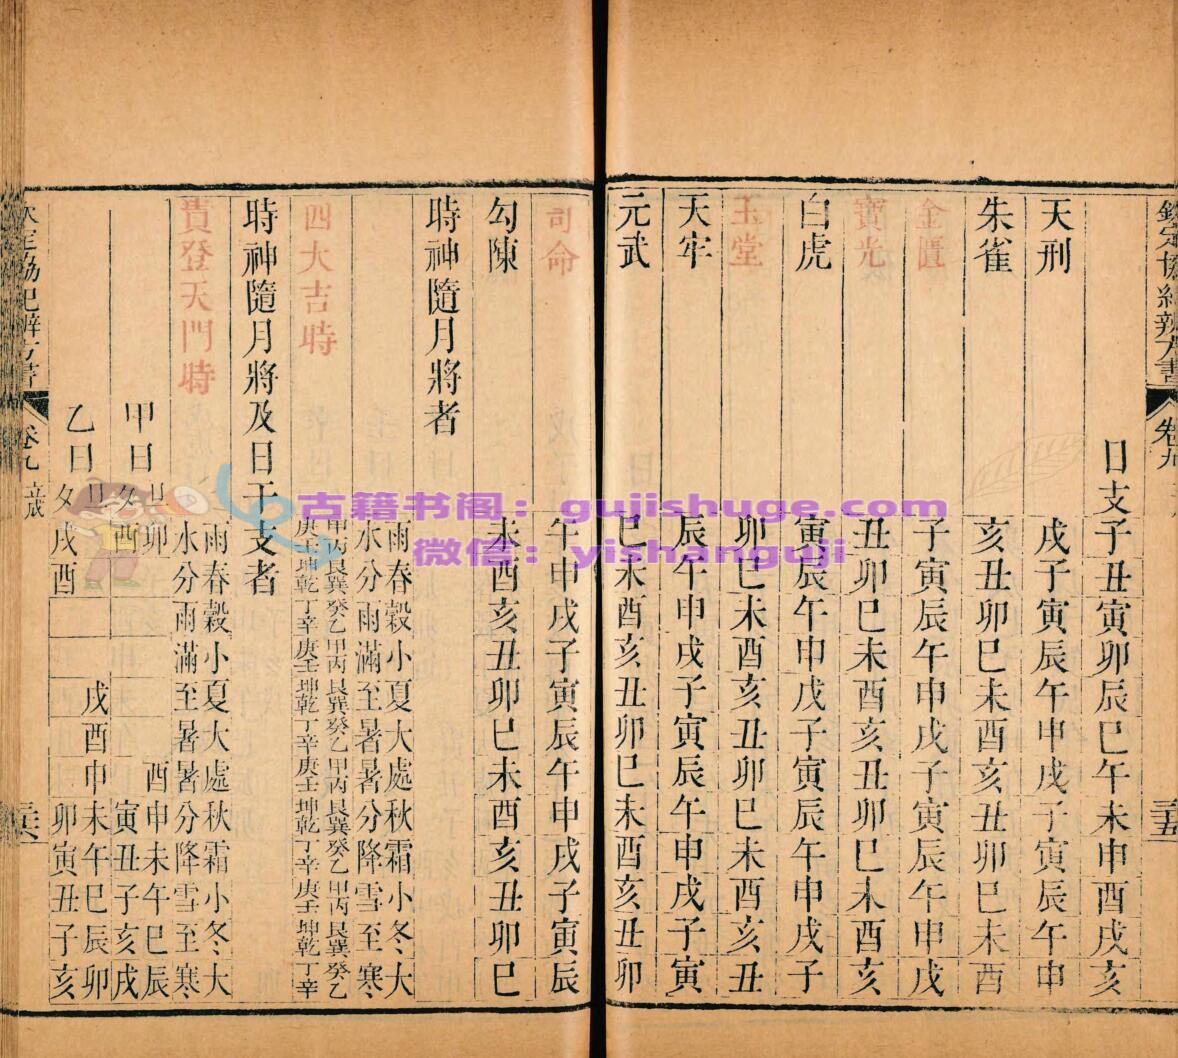 欽定協紀辨方書 卷九 三十五
日支子丑寅卯辰巳午未申酉戌亥
天刑 戌子寅辰午申戌子寅辰午申
朱雀 亥丑卯巳未酉亥丑卯巳未酉
金匱 子寅辰午申戌子寅辰午申戌
寶光 丑卯巳未酉亥丑卯巳未酉亥
白虎 寅辰午申戌子寅辰午申戌子
玉堂 卯巳未酉亥丑卯巳未酉亥丑
天牢 辰午申戌子寅辰午申戌子寅
元武 巳未酉亥丑卯巳未酉亥丑卯
司命 午申戌子寅辰午申戌子寅辰
勾陳 未酉亥丑卯巳未酉亥丑卯巳
時神隨月將者
雨春穀小夏大處秋霜小冬大
水分雨滿至暑暑分降雪至寒
四大吉時 甲丙艮巽癸乙甲丙艮巽癸乙甲丙艮巽癸乙甲丙艮巽癸乙
庚壬坤乾丁辛庚壬坤乾丁辛庚壬坤乾丁辛庚壬坤乾丁辛
時神隨月將及日干支者
貴登天門時 雨春穀小夏大處秋霜小冬大
水分雨滿至暑暑分降雪至寒
甲日 旦 卯 酉申未午巳辰
夕 酉 寅丑子亥戌
乙日 旦 戌酉申未午巳辰卯
夕 戌酉 卯寅丑子亥
欽定協紀辨方書 卷九 立成 三十六
古籍书阁：gujishuge.com
微信：yishanguji